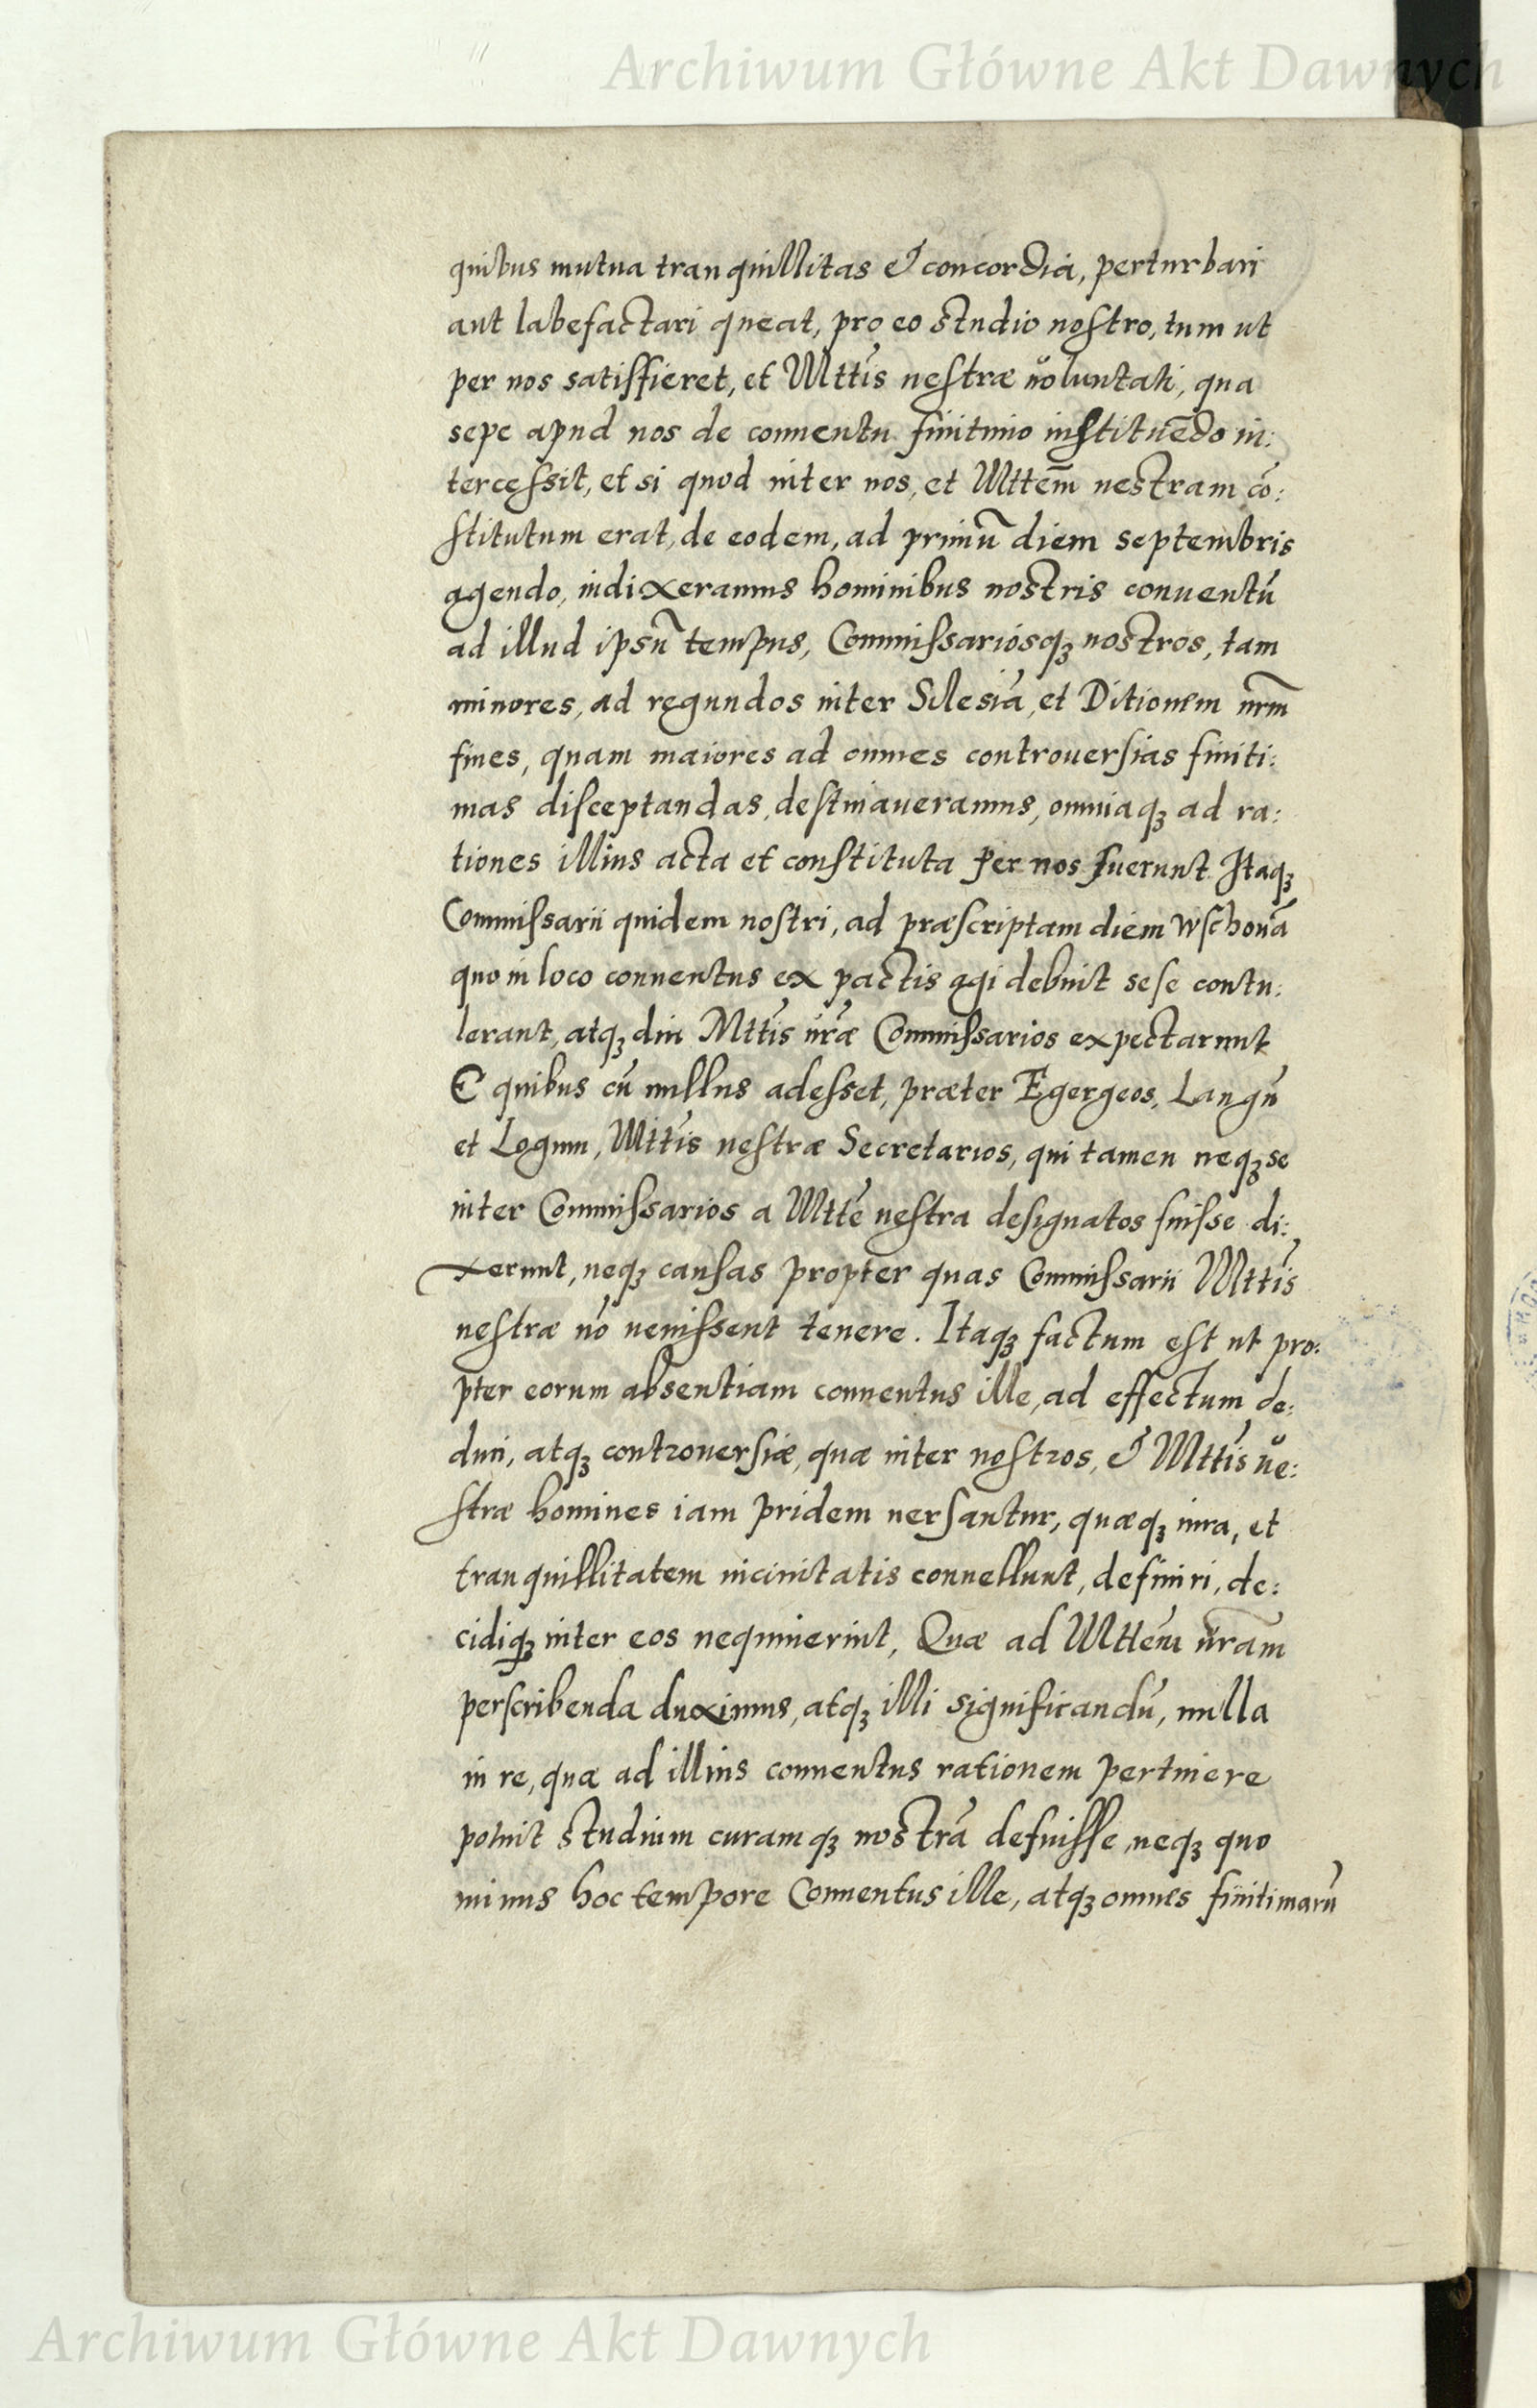 Archiwum Główne Akt Dawnych
quibus mutua tranquillitas & concordia, perturbari
aut labefactari queat, pro eo studio nostro, tum ut
per nos satisfieret, et Mttis uestræ uoluntati, qua
sepe apud nos de conuentu finitimo instituēdo in:
tercessit, et si quod inter nos, et Mttem uestram cō:
stitutum erat, de eodem, ad primū diem septembris
agendo, indixeramus hominibus nostris conuentū
ad illud ipsū tempus, Commissariosq3 nostros, tam
minores, ad regundos inter Silesiā, et Ditionem nrm
fines, quam maiores ad omnes controuersias finiti:
mas disceptandas, destinaueramus, omniaq3 ad ra:
tiones illius acta et constituta per nos fuerunt Itaq3
Commissarii quidem nostri, ad præscriptam diem Wschouā
quo in loco conuentus ex pactis agi debuit sese contu:
lerant, atq3 diu Mttis uræ Commissarios expectarunt
E quibus cū nullus adesset, præter Egergeos, Langū
et Logum, Mttis uestræ Secretarios, qui tamen neq3 se
inter Commissarios a Mtte uestra designatos fuisse di:
xerunt, neq3 causas propter quas Commissarii Mttis
uestræ nō uenissent tenere. Itaq3 factum est ut pro:
pter eorum absentiam conuentus ille, ad effectum de:
duci, atq3 controuersiæ, quæ inter nostros, & Mttis ue:
stræ homines iam pridem uersantur, quæq3 iura, et
tranquillitatem uicinitatis conuellunt, definiri, de:
cidiq3 inter eos nequiuerint, Quæ ad Mttem uram
perscribenda duximus, atq3 illi significandū, nulla
in re, quæ ad illius conuentus rationem pertinere
potuit studium curamq3 nostrā defuisse, neq3 quo
minus hoc tempore Conuentus ille, atq3 omnes finitimarū
Archiwum Główne Akt Dawnych